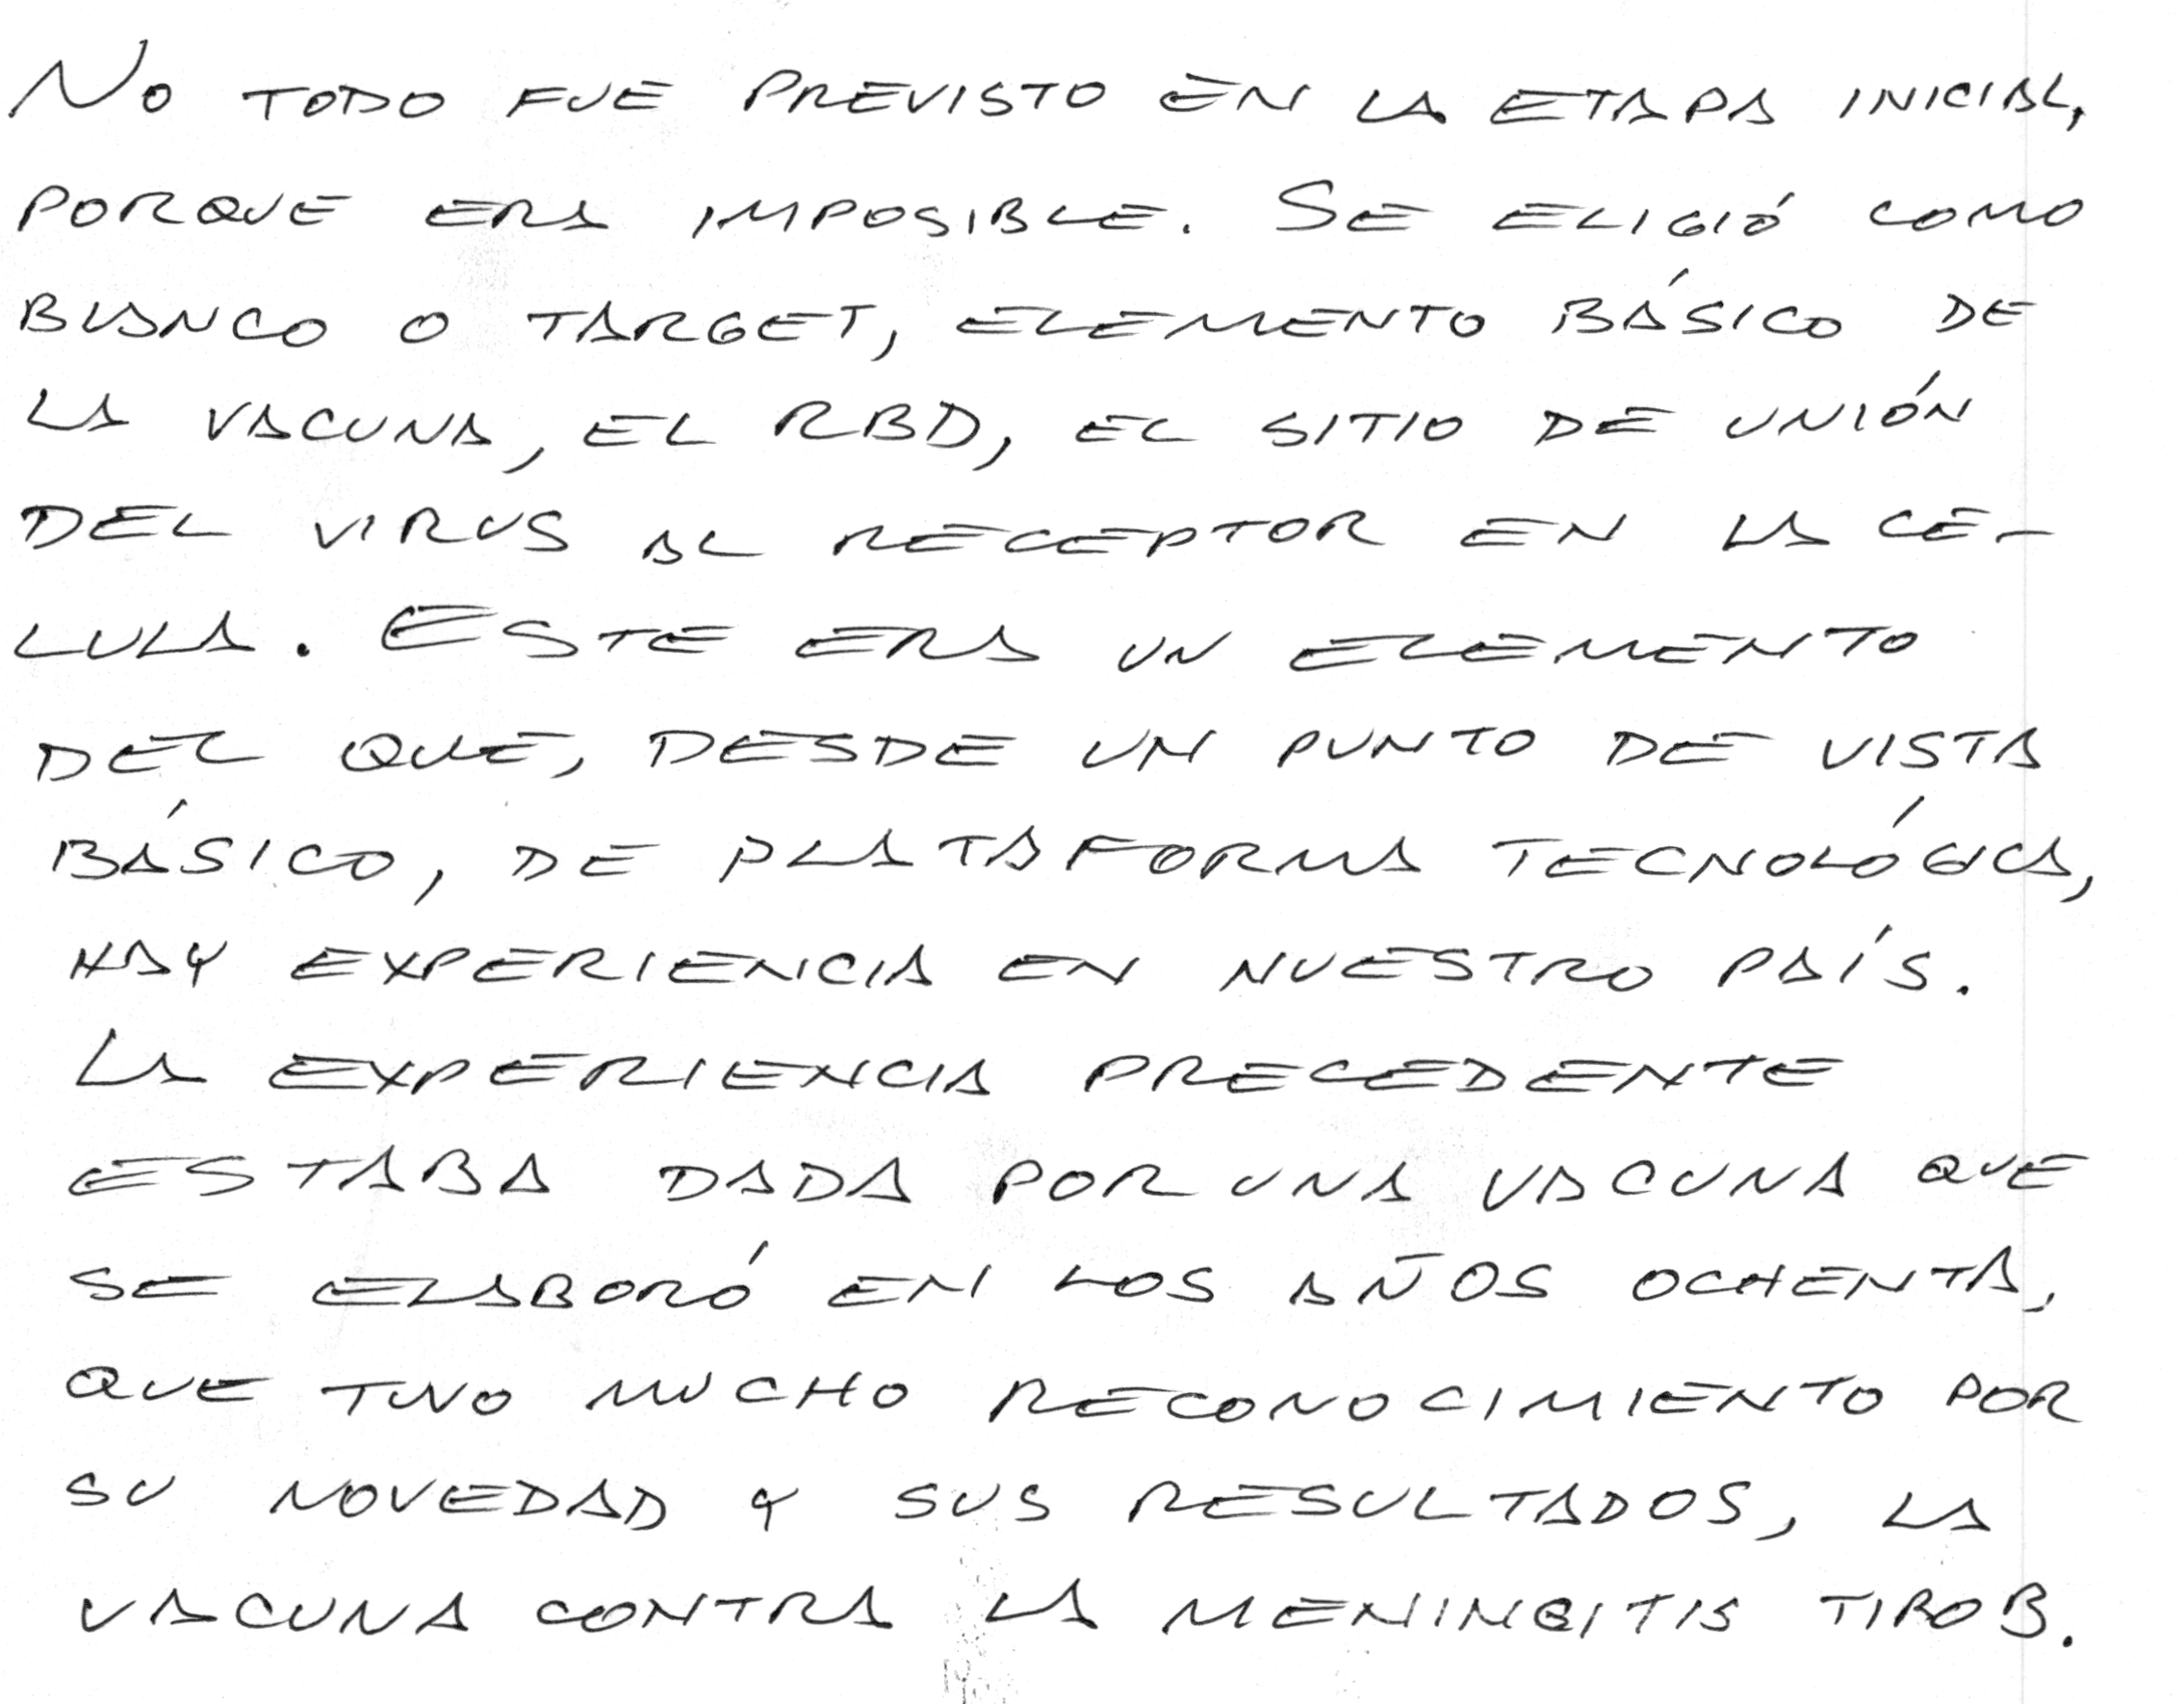 NO TODO FUE PREVISTO EN LA ETAPA INICIAL,
PORQUE ERA IMPOSIBLE. SE ELIGIÓ COMO
BLANCO O TARGET, ELEMENTO BÁSICO DE
LA VACUNA, EL RBD, EL SITIO DE UNIÓN
DEL VIRUS AL RECEPTOR EN LA CE-
LULA. ESTE ERA UN ELEMENTO
DEL QUE, DESDE UN PUNTO DE VISTA
BÁSICO, DE PLATAFORMA TECNOLÓGICA,
HAY EXPERIENCIA EN NUESTRO PAÍS.
LA EXPERIENCIA PRECEDENTE
ESTABA DADA POR UNA VACUNA QUE
SE ELABORÓ EN LOS AÑOS OCHENTA,
QUE TUVO MUCHO RECONOCIMIENTO POR
SU NOVEDAD Y SUS RESULTADOS, LA
VACUNA CONTRA LA MENINGITIS TIPO B.